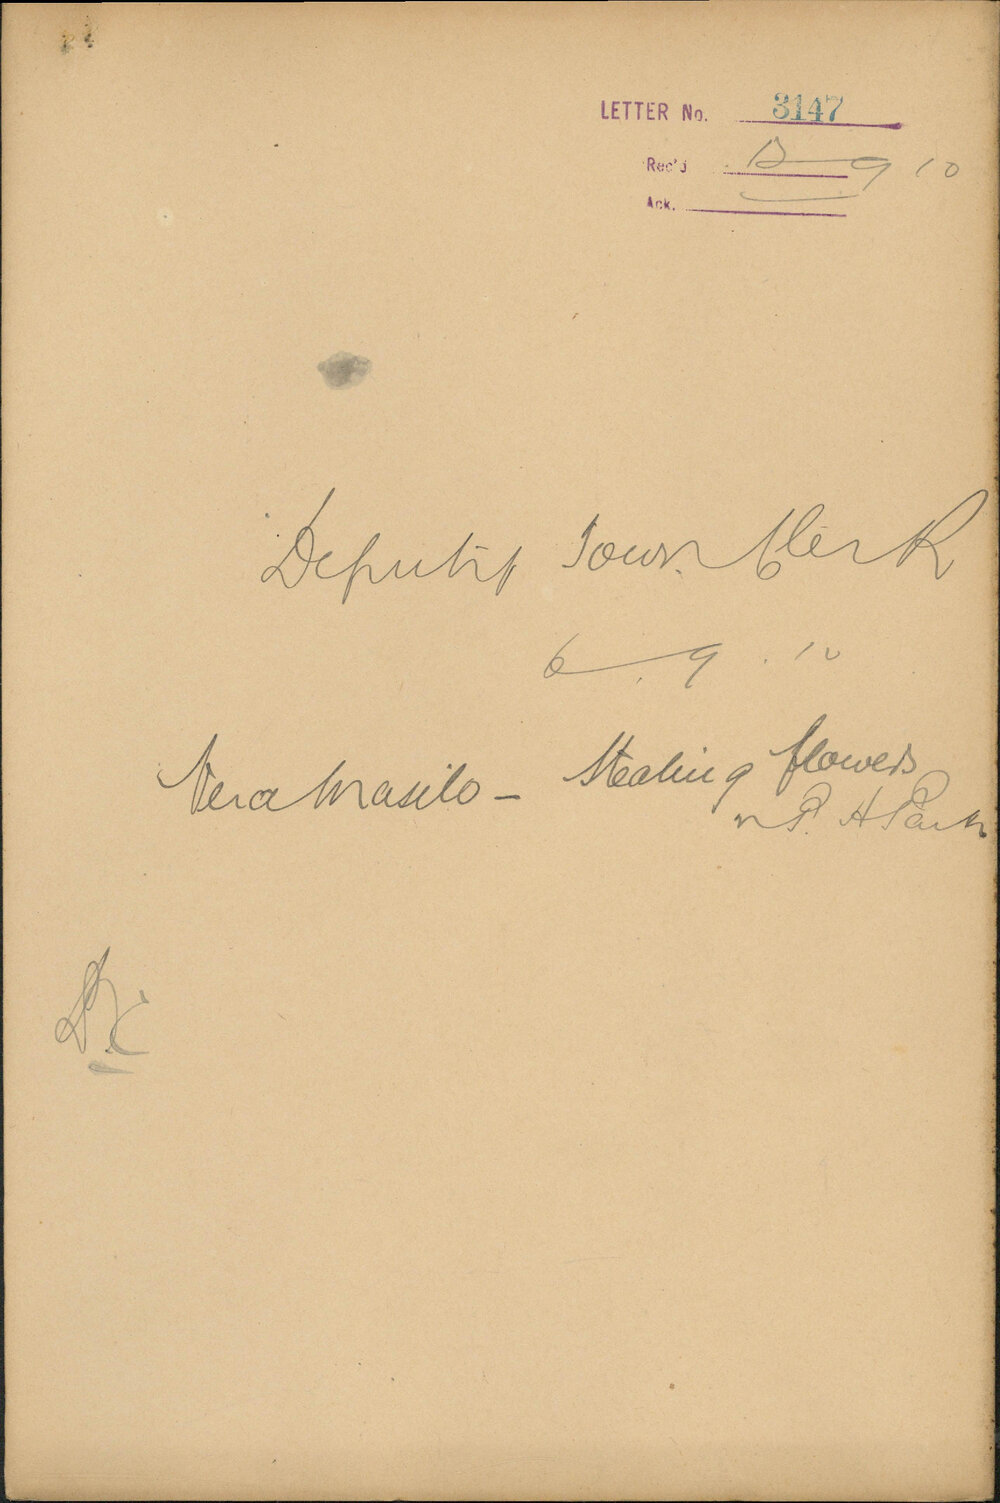 LETTER No. 3147
Rec'd 9 10
Ack.
Deputy Town Clerk
6. 9. 10
Vera - Stealing flowers
P. H Park